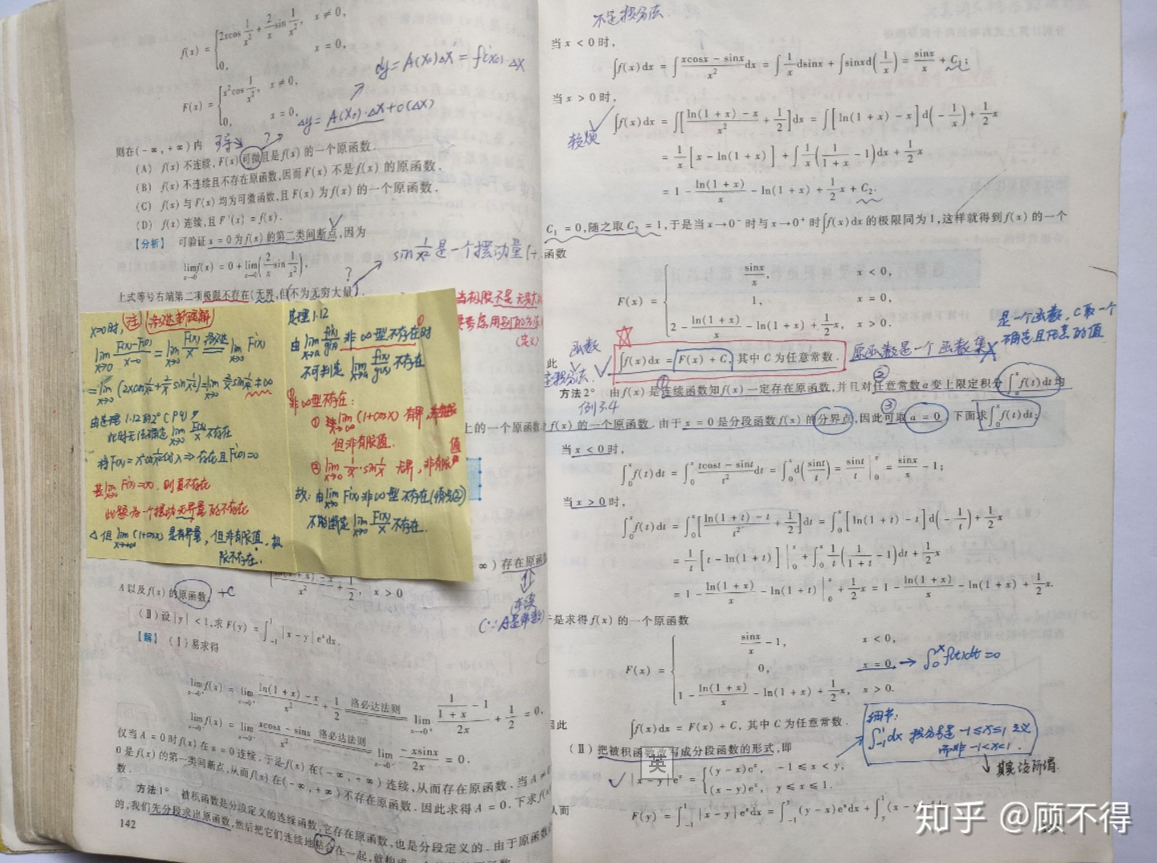 f(x) = { 2xcos 1/x² + 2/x sin 1/x², x ≠ 0,
0, x = 0,
dy = A(x₀)Δx = f'(x₀)Δx
F(x) = { x²cos 1/x², x ≠ 0,
0, x = 0,
Δy = A(x₀)·Δx + o(Δx)
则在(-∞, +∞)内
(A) f(x)不连续,F(x)可微且是f(x)的一个原函数.
(B) f(x)不连续且不存在原函数,因而F(x)不是f(x)的原函数.
(C) f(x)与F(x)均为可微函数,且F(x)为f(x)的一个原函数.
(D) f(x)连续,且F'(x) = f(x).
【分析】 可验证x = 0为f(x)的第二类间断点,因为
lim f(x) = 0 + lim(2/x sin 1/x²),
sin 1/x² 是一个摆动量
上式等号右端第二项极限不存在(无界,但不为无穷大量)
x→0时, 注 洛必达新理解
由定理1.12的2°(P19)
此时无法确定 lim F(x)/x 不存在
此题为一个摆动无界量的不存在
△但 lim(1+cosx)是有界量,但非有限值,极
限不存在.
定理1.12
由 lim f'(x)/g'(x) 非∞型不存在时
不可判定 lim f(x)/g(x) 不存在
非∞型不存在:
① 如 lim(1+cosx) 有界,
但非有限值.
② lim 1/x·sin 1/x 无界,非有限值
故:由 lim F'(x) 非∞型不存在(情况②)
不能断定 lim F(x)/x 不存在.
存在原函
x > 0
A以及f(x)的原函数. +C
(Ⅱ)设|y| < 1,求F(y) = ∫₋₁¹|x - y|eˣdx.
【解】 (Ⅰ)易求得
lim f(x) = lim [ln(1 + x) - x]/x² + 1/2 洛必达法则 lim (1/(1 + x) - 1)/2x + 1/2 = 0,
lim f(x) = lim (xcosx - sinx)/x² 洛必达法则 lim -xsinx/2x = 0.
仅当A = 0时f(x)在x = 0连续,于是f(x)在(-∞, +∞)连续,从而存在原函数.当A ≠
0是f(x)的第一类间断点,从而f(x)在(-∞, +∞)不存在原函数.因此求得A = 0.下求f(x)
数.
方法1° 被积函数是分段定义的连续函数,它存在原函数,也是分段定义的.由于原函数
的,我们先分段求出原函数,然后把它们连续地粘合在一起,就构成一个
142
不定积分法.
当x < 0时,
∫f(x)dx = ∫(xcosx - sinx)/x² dx = ∫1/x dsinx + ∫sinxd(1/x) = sinx/x + C₁;
当x > 0时,
较烦
∫f(x)dx = ∫[(ln(1 + x) - x)/x² + 1/2]dx = ∫[ln(1 + x) - x]d(-1/x) + 1/2 x
= 1/x[x - ln(1 + x)] + ∫1/x(1/(1 + x) - 1)dx + 1/2 x
= 1 - ln(1 + x)/x - ln(1 + x) + 1/2 x + C₂.
C₁ = 0,随之取C₂ = 1,于是当x→0⁻时与x→0⁺时∫f(x)dx的极限同为1,这样就得到f(x)的一个
函数
F(x) = { sinx/x, x < 0,
1, x = 0,
2 - ln(1 + x)/x - ln(1 + x) + 1/2 x, x > 0.
是一个函数,C取一个
确定且不变的值
此 ∫f(x)dx = F(x) + C, 其中C为任意常数.
原函数是一个函数集
方法2° 由f(x)是连续函数知f(x)一定存在原函数,并且对任意常数a变上限定积分∫ₐˣf(t)dt均
例3.4
f(x)的一个原函数.由于x = 0是分段函数f(x)的分界点,因此可取a = 0.下面求∫₀ˣf(t)dt.
当x < 0时,
∫₀ˣf(t)dt = ∫₀ˣ(tcost - sint)/t² dt = ∫₀ˣd(sint/t) = sint/t|₀ˣ = sinx/x - 1;
当x > 0时,
∫₀ˣf(t)dt = ∫₀ˣ[(ln(1 + t) - t)/t² + 1/2]dt = ∫₀ˣ[ln(1 + t) - t]d(-1/t) + 1/2 x
= -1/t[ln(1 + t) - t]|₀ˣ + ∫₀ˣ1/t(1/(1 + t) - 1)dt + 1/2 x
= 1 - ln(1 + x)/x - ln(1 + t)|₀ˣ + 1/2 x = 1 - ln(1 + x)/x - ln(1 + x) + 1/2 x.
是求得f(x)的一个原函数
F(x) = { sinx/x - 1, x < 0,
0, x = 0, → ∫₀ˣf(t)dt=0
1 - ln(1 + x)/x - ln(1 + x) + 1/2 x, x > 0.
因此 ∫f(x)dx = F(x) + C, 其中C为任意常数.
细节:
∫₋₁¹dx 积分是 -1≤x≤1 定义
而非 -1<x<1.
其实没所谓.
(Ⅱ)把被积函数 成分段函数的形式,即
英
|x - y|eˣ = { (y - x)eˣ, -1 ≤ x < y,
(x - y)eˣ, y ≤ x ≤ 1.
从而 F(y) = ∫₋₁¹|x - y|eˣdx = ∫₋₁ʸ(y - x)eˣdx + ∫ʸ¹(x -
知乎 @顾不得